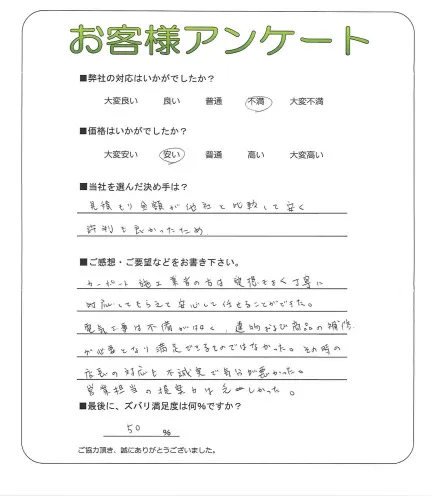 お客様アンケート
■弊社の対応はいかがでしたか？
大変良い 良い 普通 不満 大変不満
■価格はいかがでしたか？
大変安い 安い 普通 高い 大変高い
■当社を選んだ決め手は？
見積もり金額が他社と比較して安く
評判も良かったため
■ご感想・ご要望などをお書き下さい。
カーポート施工業者の方は愛想もよく丁寧に
対応してもらえて安心して任せることができた。
電気工事は不備がひどく、連絡および商品の補修
が必要となり満足できるものではなかった。その時の
店長の対応も不誠実で気分が悪かった。
営業担当の提案力は
しかった。
■最後に、ズバリ満足度は何％ですか？
50 ％
ご協力頂き、誠にありがとうございました。